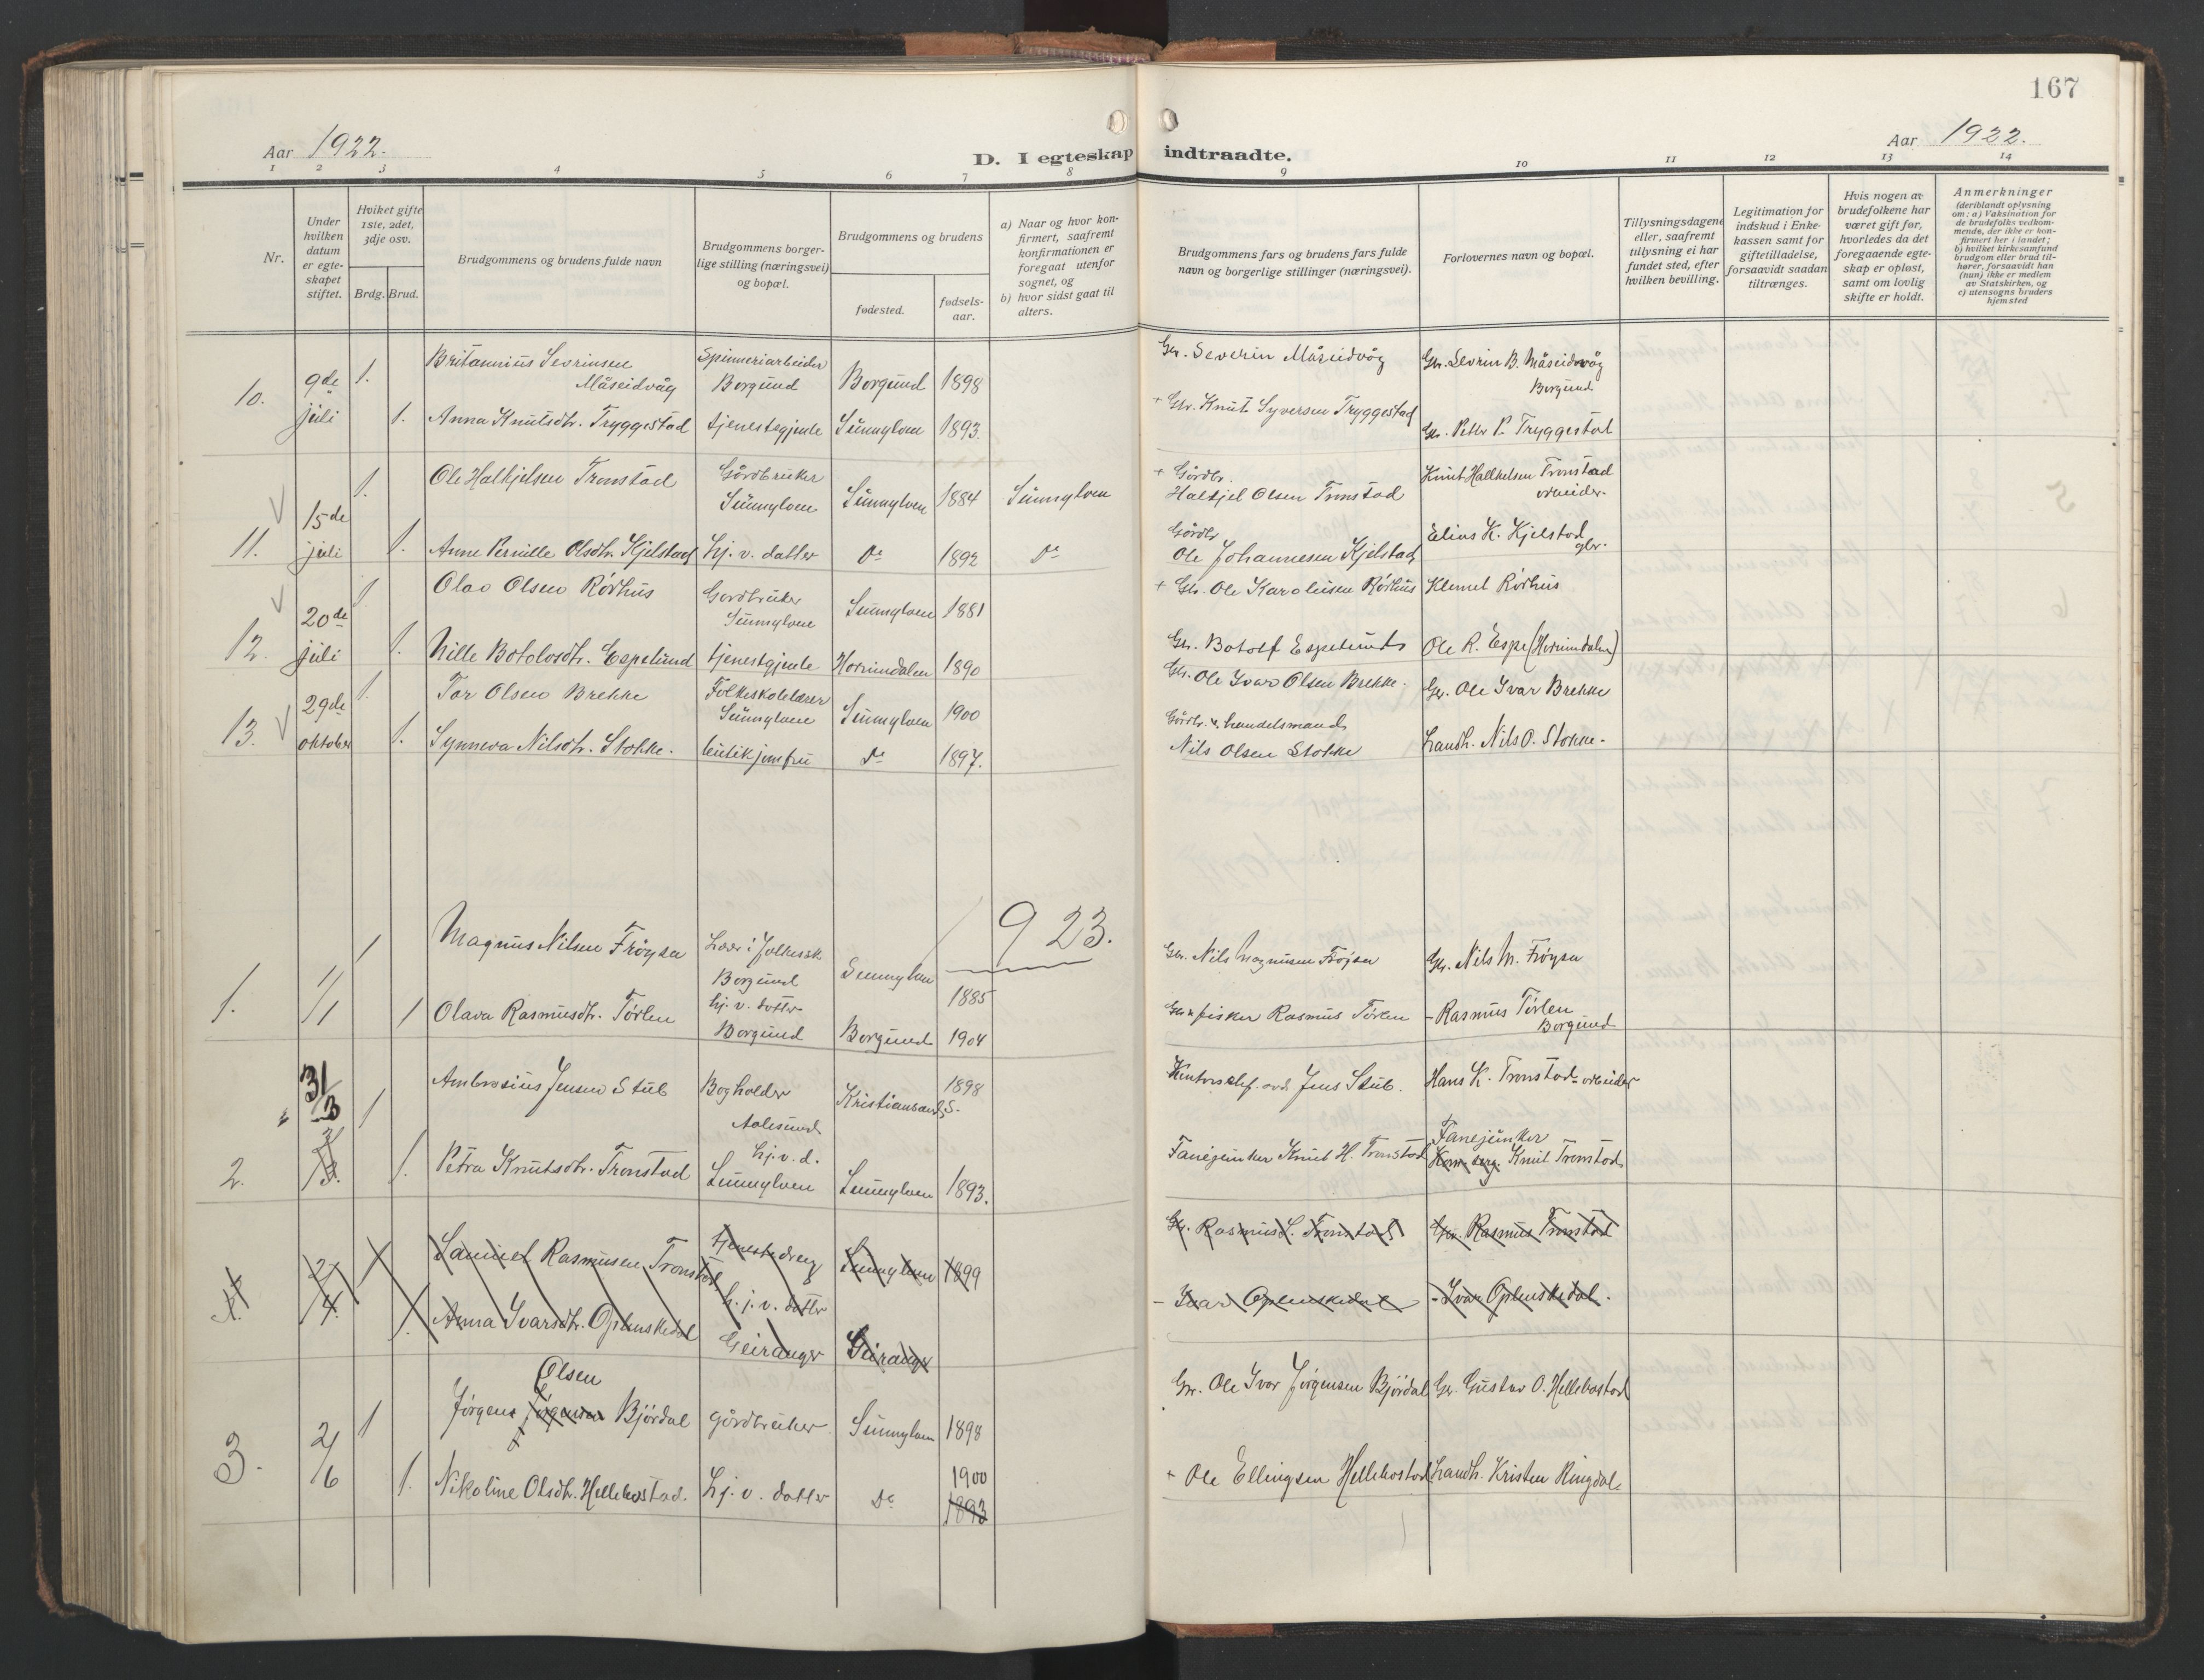 167
Aar 1922.
D. I egteskap indtraadte.
Aar 1922.
1 2 3 4 5 6 7 8 9 10 11 12 13 14
Nr.
Under hvilken datum er egte-skapet stiftet.
Hvilket gifte 1ste, 2det, 3dje osv.
Brdg. Brud.
Brudgommens og brudens fulde navn
Brudgommens borger-lige stilling (næringsvei) og bopæl.
Brudgommens og brudens
fødested.
fødsels-aar.
a) Naar og hvor kon-firmert, saafremt konfirmationen er foregaat utenfor sognet, og
b) hvor sidst gaat til alters.
Brudgommens fars og brudens fars fulde navn og borgerlige stillinger (næringsvei).
Forlovernes navn og bopæl.
Tillysningsdagene eller, saafremt tillysning ei har fundet sted, efter hvilken bevilling.
Legitimation for indskud i Enke-kassen samt for giftetilladelse, forsaavidt saadan tiltrænges.
Hvis nogen av brudefolkene har været gift før, hvorledes da det foregaaende egte-skap er opløst, samt om lovlig skifte er holdt.
Anmerkninger (deriblandt oplysning om: a) Vaksination for de brudefolks vedkom-mende, der ikke er kon-firmert her i landet; b) hvilket kirkesamfund brudgom eller brud til-hører, forsaavidt han (hun) ikke er medlem av Statskirken, og c) utensogns bruders hjemsted
10. 9de juli
1. Britannius Sevrinsen Måseidvåg Spinneriarbeider Borgund Borgund 1898 Gbr. Severin Måseidvåg Gbr. Sevrin B. Måseidvåg Borgund
1. Anna Knutsdtr. Tryggestad tjenestegjente Sunnylven 1893. + Gbr. Knut Syversen Tryggestad Gbr. Petter P. Tryggestad
11. 15de juli
1. Ole Halkjelsen Tronstad Gårdbruker Sunnylven Sunnylven 1884 Sunnylven + Gårdbr. Halkjel Olsen Tronstad Knut Hallkelsen Tronstad arbeider.
1. Anne Pernille Olsdtr. Kjelstad hj. v. datter Do 1892 Do Gårdbr Ole Johannesen Kjelstad Elias K. Kjelstad gbr.
12. 20de juli
1. Olav Olsen Rødhus Gardbruker Sunnylven Sunnylven 1881 + Gbr. Ole Karolusen Rødhus Klemet Rødhus
1. Nille Botolvdtr. Espelund tjenestgjente Hornindalen 1890 Gbr. Botolf Espelund Ole R. Espe (Hornindalen)
13. 29de oktober
1. Tor Olsen Brekke Folkeskolelærer Sunnylven Sunnylven 1900 Gbr. Ole Ivar Olsen Brekke. Gbr. Ole Ivar Brekke
1. Synneva Nilsdtr. Stokke. butikjomfru Do 1897. Gårdbr. & handelsmand Nils Olsen Stokke Landh. Nils O. Stokke.
1923.
1. 1/1
1 Magnus Nilsen Frøysa Lærer i folkessk Borgund Sunnylven 1885 Gbr. Nils Magnusen Frøysa Gbr. Nils M. Frøysa
1 Olava Rasmusdtr. Tørlen hj. v. datter Borgund Borgund 1904 Gbr & fisker Rasmus Tørlen - Rasmus Tørlen Borgund
2. 31/3
1 Ambrosius Jensen Stub Bogholder Aalesund Kristiansand S. 1898 Kontorchef. Jens Stub. Hans K. Tronstad - arbeider
1. Petra Knutsdtr. Tronstad hj. v. d. Sunnylven Sunnylven 1893. Fanejunker Knut H. Tronstad Fanejunker Knut Tronstad
2/4
Samuel Rasmusen Tronstad tjenestedreng Sunnylven 1899 Gbr. Rasmus S. Tronstad Gbr. Rasmus Tronstad
1. Anna Ivarsdtr. Oplenskedal h. j. v. datter Geiranger Geiranger - Ivar Oplenskedal - Ivar Oplenskedal.
3. 2/6
1 Jørgen Jørgensen Olsen Bjørdal gårdbruker Sunnylven 1898 Gbr. Ole Ivar Jørgensen Bjørdal Gbr. Gustav O. Hellebostad
1. Nikoline Olsdtr. Hellebostad. hj. v. datter Do 1900 1893 + Ole Ellingsen Hellebostad Landh. Kristen Ringdal.